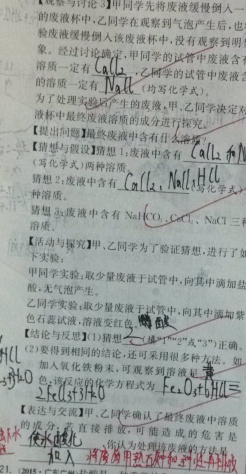 【观察与讨论3】甲同学先将废液缓慢倒入
的废液杯中,乙同学在观察到气泡产生后,也
验废液缓慢倒入该废液杯中,没有观察到明
象。经过讨论确定,甲同学的试管中废液含
溶质一定有CaCl₂,乙同学的试管中废液
的溶质一定有NaCl(均写化学式)。
为了处理实验后产生的废液,甲、乙同学决定对
液杯中最终废液溶质的成分进行探究。
【提出问题】最终废液中含有什么溶质?
【猜想与假设】猜想1:废液中含有CaCl₂和N
(写化学式)两种溶质。
猜想2:废液中含有CaCl₂、NaCl、HCl(写化学式)
种溶质。
猜想3:废液中含有NaHCO₃、CaCl₂、NaCl三种
溶质。
【活动与探究】甲、乙同学为了验证猜想,进行了如
下实验:
甲同学实验:取少量废液于试管中,向其中滴加盐
酸,无气泡产生。
乙同学实验:取少量废液于试管中,向其中滴加紫
色石蕊试液,溶液变红色。
【结论与反思】(1)猜想二(填“1”“2”或“3”)正确。
(2)要得到相同的结论,还可采用很多种方法。如
加入氧化铁粉末,可观察到溶液呈黄
色;该反应的化学方程式为Fe₂O₃+6HCl=
2FeCl₃+3H₂O
【表达与交流】甲、乙同学确认了最终废液中溶质
的成分,若直接排放,可能造成的危害是
使水酸化,你认为处理该废液的方法是
加入